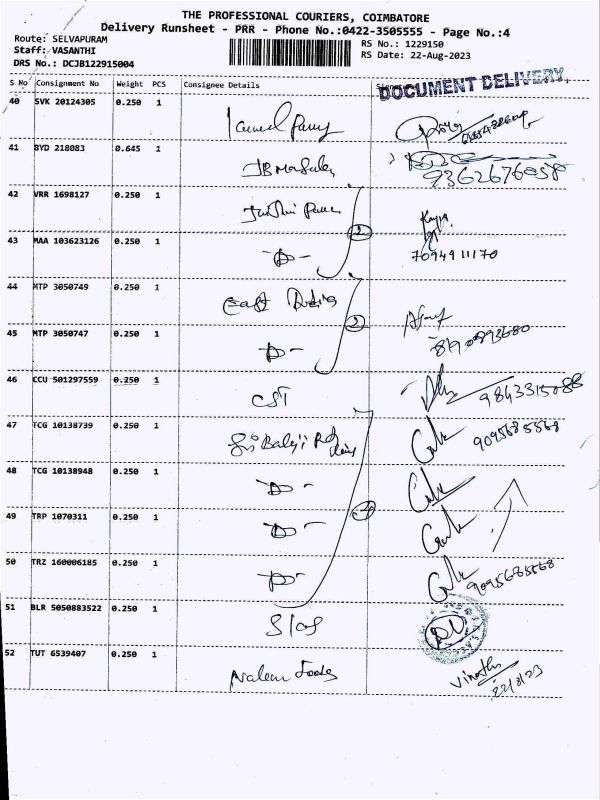 THE PROFESSIONAL COURIERS, COIMBATORE
Delivery Runsheet - PRR - Phone No.:0422-3505555 - Page No.:4
Route: SELVAPURAM
Staff: VASANTHI
DRS No.: DCJB122915004
RS No.: 1229150
RS Date: 22-Aug-2023
S No Consignment No Weight PCS Consignee Details
DOCUMENT DELIVERY
40 SVK 20124305 0.250 1
41 BYD 218083 0.645 1 JB
9362676958
42 VRR 1698127 0.250 1
2
43 MAA 103623126 0.250 1 -D-
7094911170
44 MTP 3050749 0.250 1
2
45 MTP 3050747 0.250 1 -D-
8190893680
46 CCU 501297559 0.250 1 CST 9843315088
47 TCG 10138739 0.250 1 Sri Balaji 9095685568
48 TCG 10138948 0.250 1 -D-
49 TRP 1070311 0.250 1 -D-
50 TRZ 160006185 0.250 1 -D- 9095685568
51 BLR 5050883522 0.250 1
52 TUT 6539407 0.250 1 Nalem Foods Vinoth
22/8/23